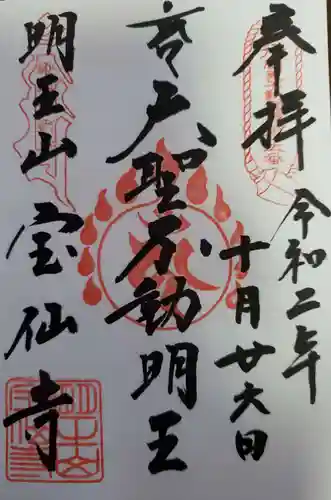 奉拝
令和二年
十月廿六日
音戸聖不動明王
明王山宝仙寺